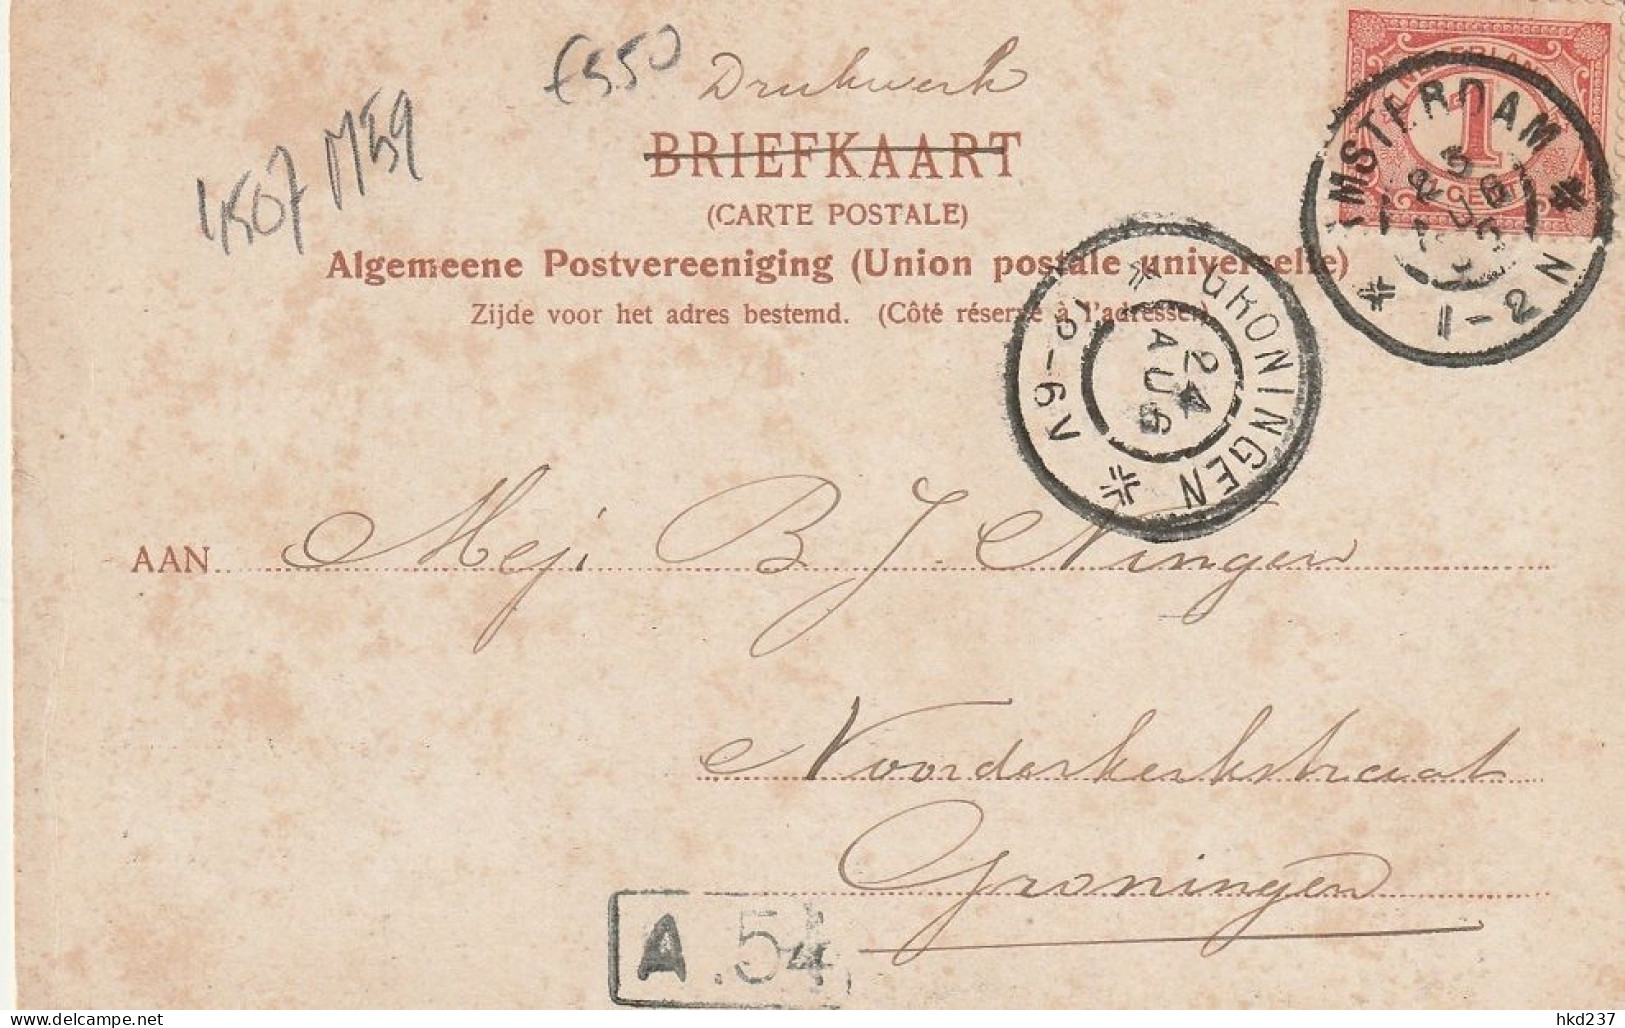 €5.50
4507 M59
Drukwerk
BRIEFKAART
(CARTE POSTALE)
Algemeene Postvereeniging (Union postale universelle)
Zijde voor het adres bestemd. (Côté réservé à l'adresse)
NEDERLAND
1
CENT
AMSTERDAM
23 AUG
1-2 N
GRONINGEN
24 AUG
5-6V
AAN Mej. B J. Ningen
Noorderkerkstraat
Groningen
A.54
www.delcampe.net
hkd237